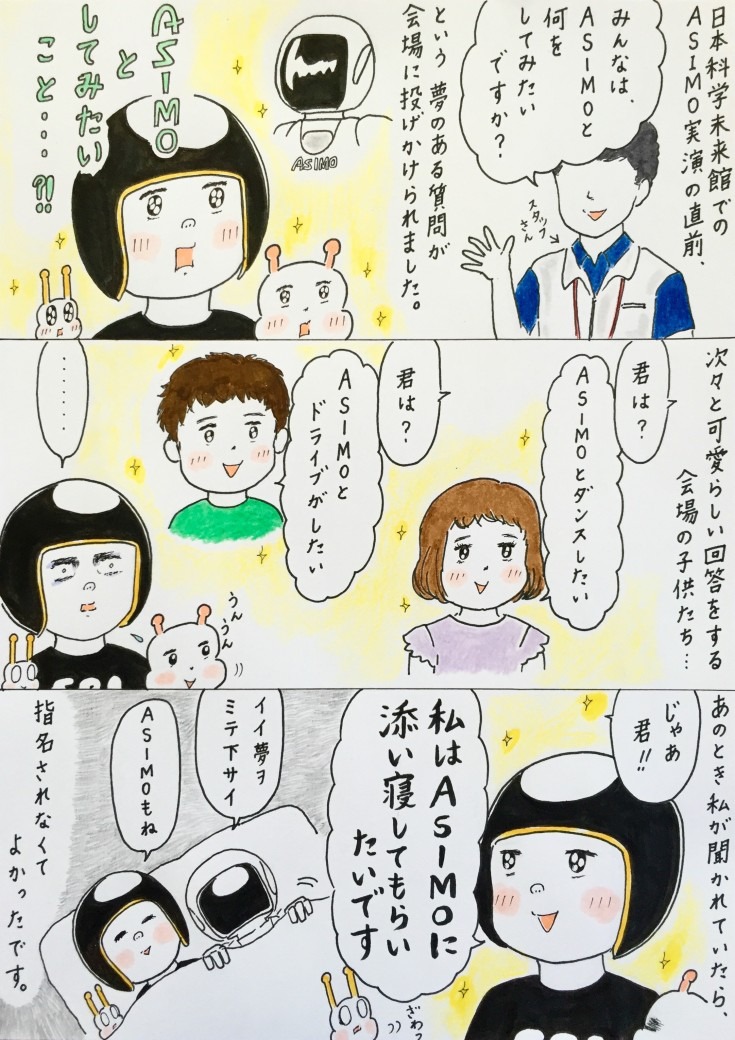 日本科学未来館での
ASIMO実演の直前、
みんなは、
ASIMOと
何を
してみたい
ですか？
スタッフ
さん
という夢のある質問が
会場に投げかけられました。
ASIMO
ASIMO
と
してみたい
こと・・・?!!
次々と可愛らしい回答をする
会場の子供たち…
君は？
ASIMOとダンスしたい
君は？
ASIMOと
ドライブがしたい
・・・・・・・
うんうん
あのとき私が聞かれていたら、
じゃあ
君!!
私はASIMOに
添い寝してもらい
たいです
ざわっ
イイ夢ヲ
ミテ下サイ
ASIMOもね
指名されなくて
よかったです。